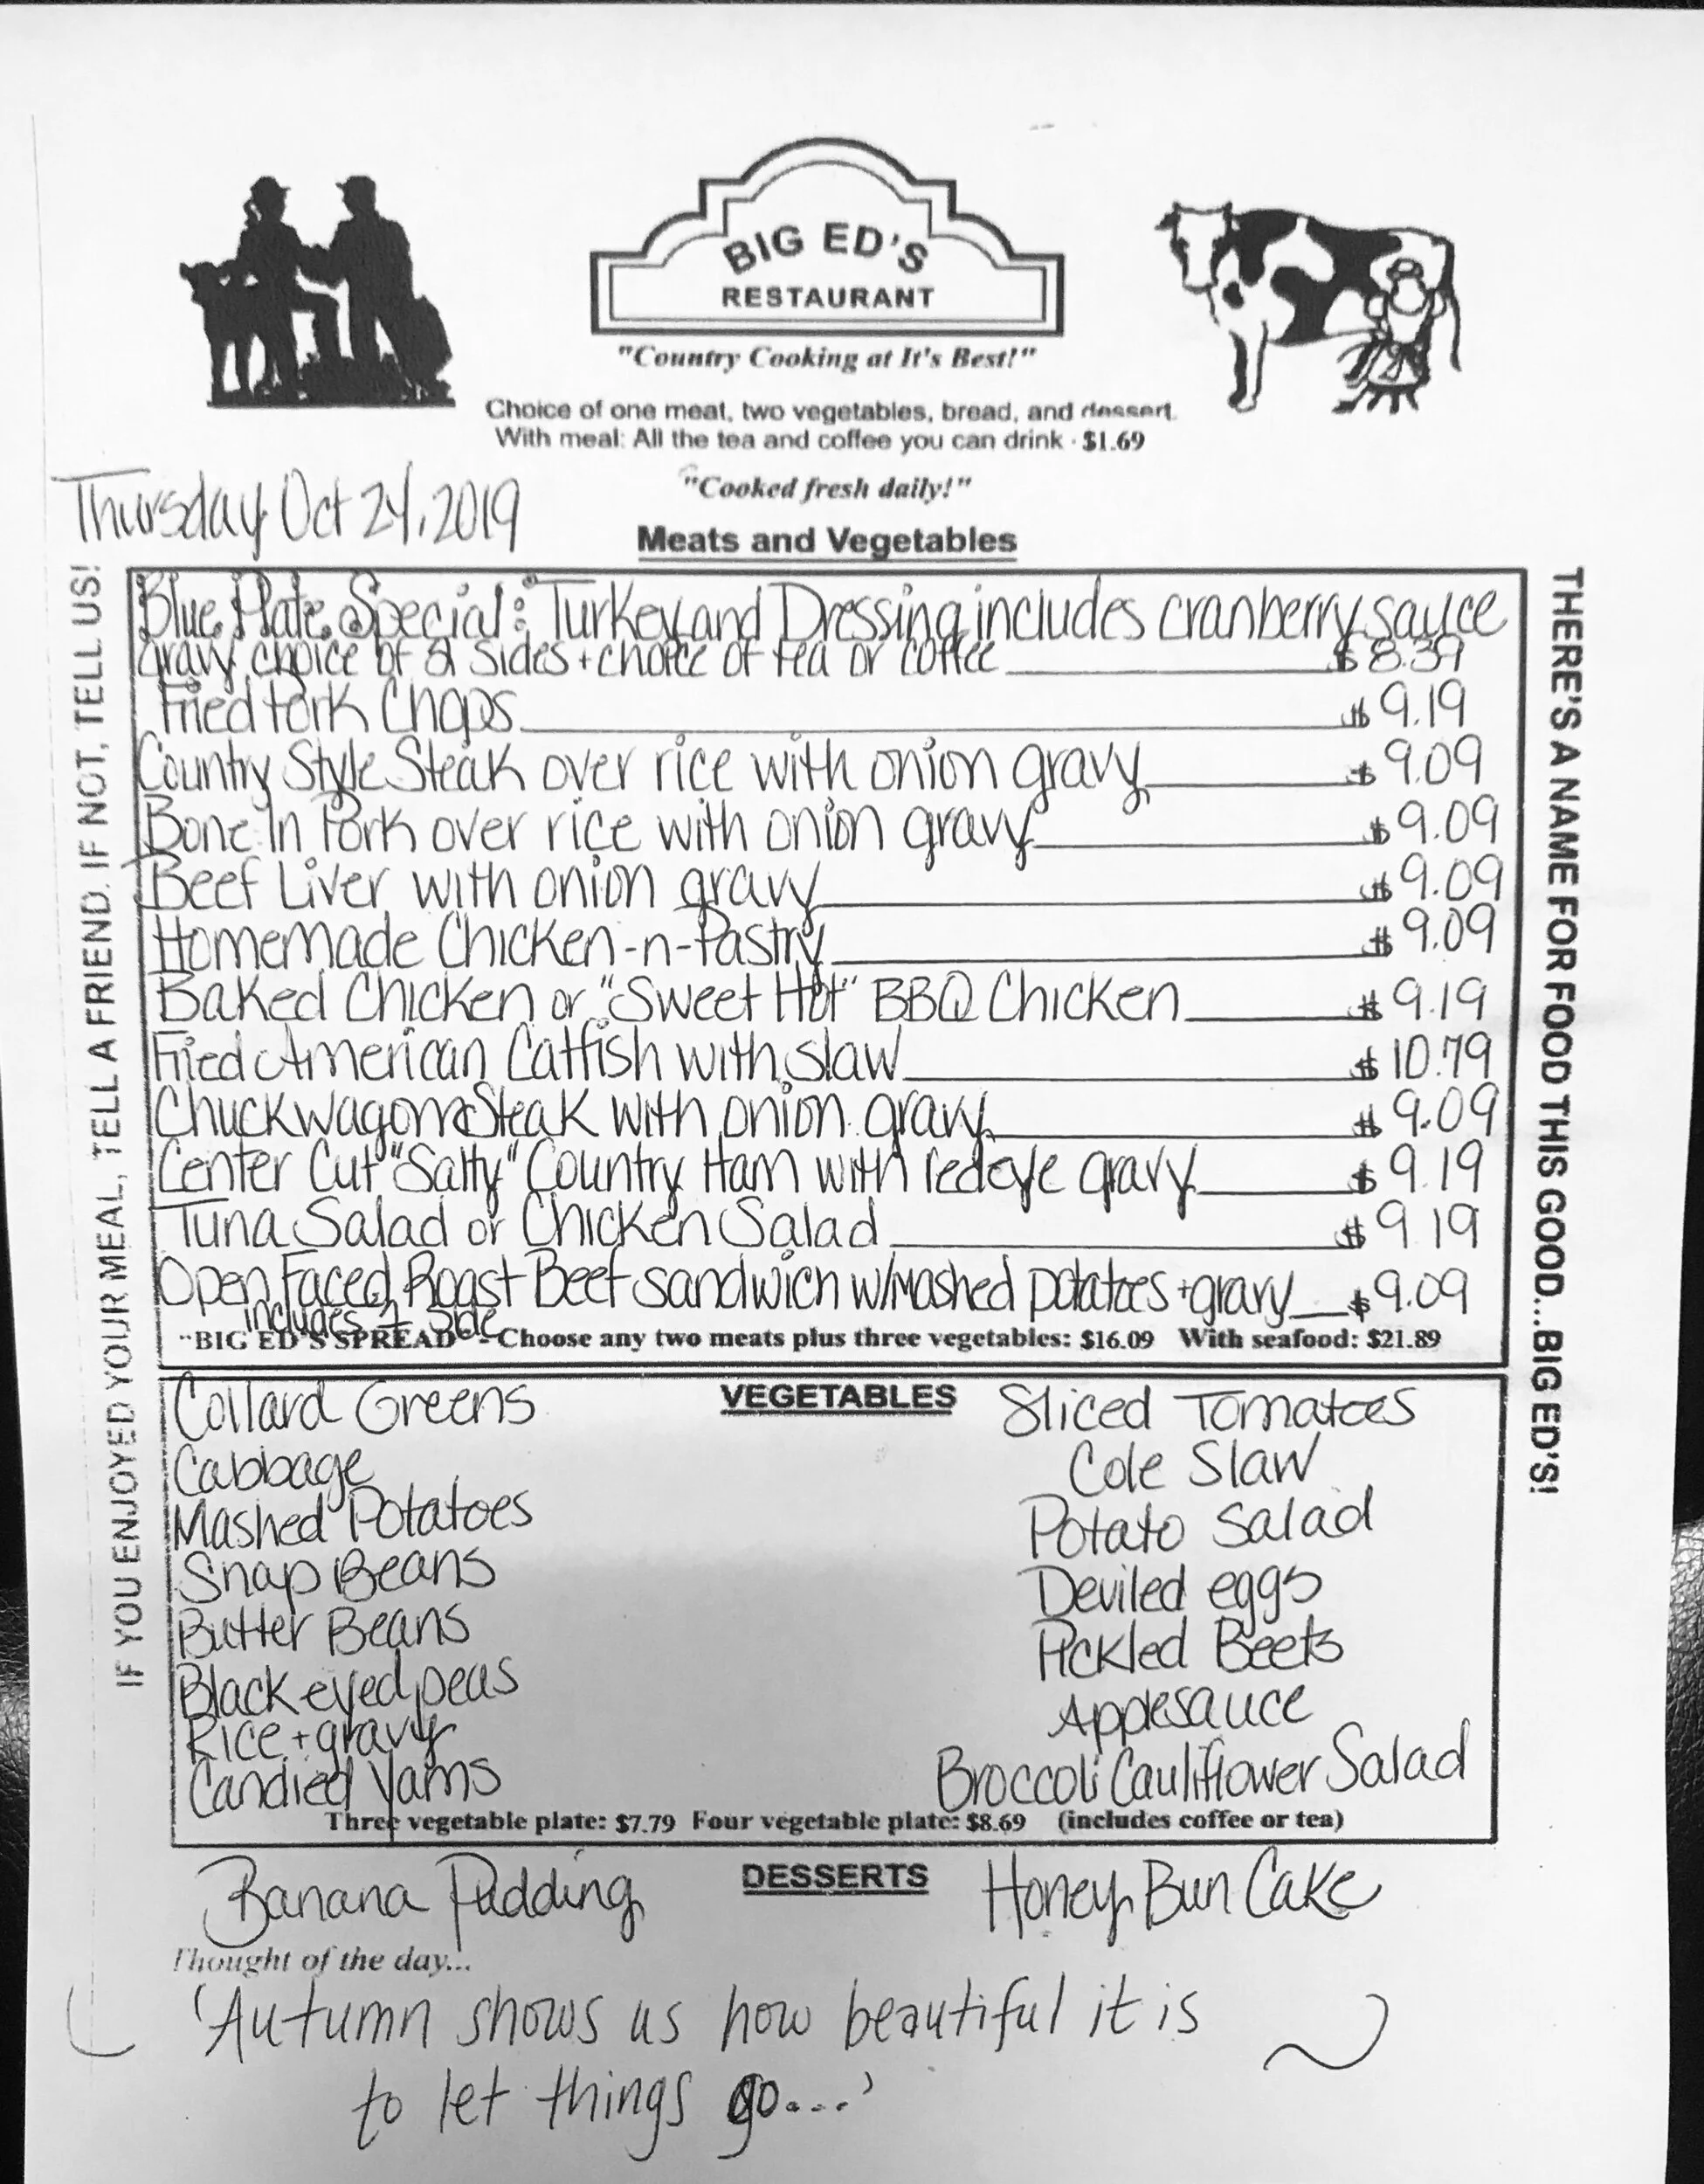 BIG ED'S
RESTAURANT
"Country Cooking at It's Best!"
Choice of one meat, two vegetables, bread, and dessert.
With meal: All the tea and coffee you can drink - $1.69
"Cooked fresh daily!"
Thursday Oct 24, 2019
Meats and Vegetables
IF YOU ENJOYED YOUR MEAL, TELL A FRIEND. IF NOT, TELL US!
THERE'S A NAME FOR FOOD THIS GOOD...BIG ED'S!
Blue Plate Special: Turkey and Dressing includes cranberry sauce
gravy, choice of 2 sides + choice of tea or coffee $8.39
Fried Pork Chops $9.19
Country Style Steak over rice with onion gravy $9.09
Bone In Pork over rice with onion gravy $9.09
Beef Liver with onion gravy $9.09
Homemade Chicken-n-Pastry $9.09
Baked Chicken or "Sweet Hot" BBQ Chicken $9.19
Fried American Catfish with slaw $10.79
Chuckwagon Steak with onion gravy $9.09
Center Cut "Salty" Country Ham with redeye gravy $9.19
Tuna Salad or Chicken Salad $9.19
Open Faced Roast Beef sandwich w/mashed potatoes + gravy $9.09
includes 1 side
"BIG ED'S SPREAD" - Choose any two meats plus three vegetables: $16.09 With seafood: $21.89
VEGETABLES
Collard Greens
Cabbage
Mashed Potatoes
Snap Beans
Butter Beans
Black eyed peas
Rice + gravy
Candied Yams
Sliced Tomatoes
Cole Slaw
Potato Salad
Deviled eggs
Pickled Beets
Applesauce
Broccoli Cauliflower Salad
Three vegetable plate: $7.79 Four vegetable plate: $8.69 (includes coffee or tea)
DESSERTS
Banana Pudding
Honey Bun Cake
Thought of the day...
'Autumn shows us how beautiful it is
to let things go....'